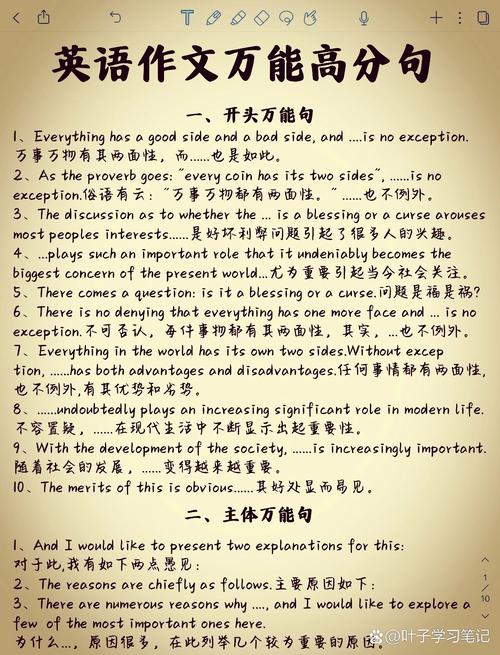 英语作文万能高分句
一、开头万能句
1、Everything has a good side and a bad side, and ....is no exception.
万事万物有其两面性，而......也是如此。
2、As the proverb goes: "every coin has its two sides", ......is no
exception.俗语有云："万事万物都有两面性。"......也不例外。
3、The discussion as to whether the ... is a blessing or a curse arouses
most peoples interests......是好坏利弊问题引起了很多人的兴趣。
4、...plays such an important role that it undeniably becomes the
biggest concern of the present world...尤为重要引起当今社会关注。
5、There comes a question: is it a blessing or a curse.问题是福是祸?
6、There is no denying that everything has one more face and ... is no
exception.不可否认，每件事物都有其两面性，其实，...也不例外。
7、Everything in the world has its own two sides.Without excep
tion, ......has both advantages and disadvantages.任何事情都有两面性，
也不例外,有其优势和劣势。
8、......undoubtedly plays an increasing significant role in modern life.
不容置疑，......在现代生活中不断显示出起重要性。
9、With the development of the society, ......is increasingly important.
随着社会的发展，......变得越来越重要。
10、The merits of this is obvious......其好处显而易见。
二、主体万能句
1、And I would like to present two explanations for this:
对于此,我有如下两点愚见：
2、The reasons are chiefly as follows.主要原因如下：
3、There are numerous reasons why ...., and I would like to explore a
few of the most important ones here.
为什么...，原因很多，在此列举几个较为重要的原因。
1
10
@叶子学习笔记